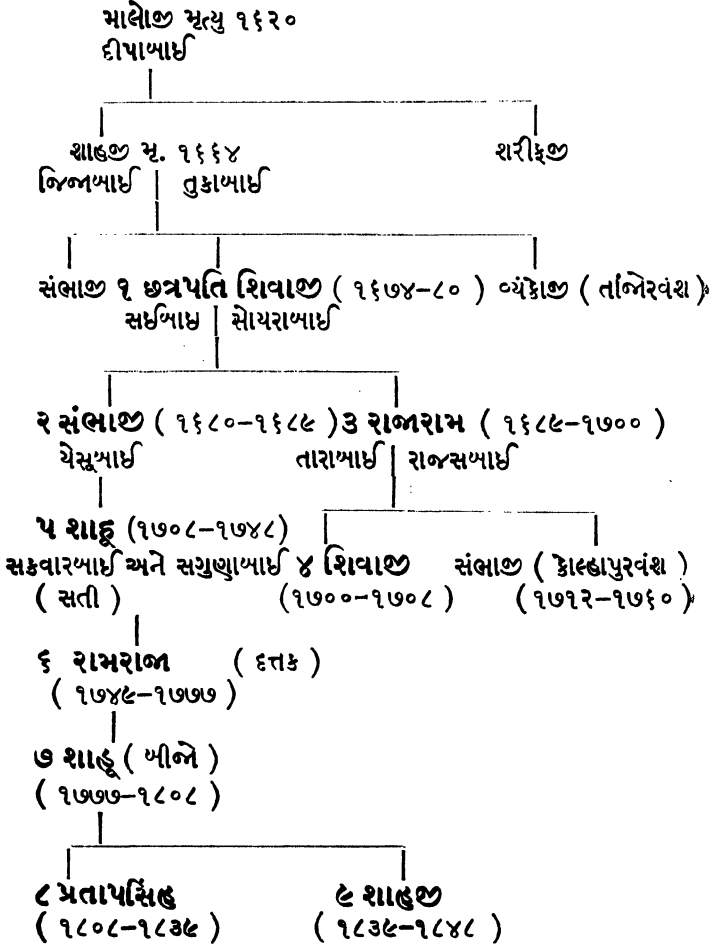 માલોજી મૃત્યુ ૧૬૨૦
દીપાબાઈ
શાહજી મૃ. ૧૬૬૪ શરીફજી
જિજાબાઈ તુકાબાઈ
સંભાજી ૧ છત્રપતિ શિવાજી ( ૧૬૭૪–૮૦ ) વ્યંકોજી ( તાંજોરવંશ )
સઈબાઇ સોયરાબાઈ
૨ સંભાજી ( ૧૬૮૦–૧૬૮૯ ) ૩ રાજારામ ( ૧૬૮૯–૧૭૦૦ )
યેસૂબાઈ તારાબાઈ રાજસબાઈ
૫ શાહૂ (૧૭૦૮–૧૭૪૮)
સકવારબાઈ અને સગુણાબાઈ ૪ શિવાજી સંભાજી ( કોલ્હાપુરવંશ )
( સતી ) (૧૭૦૦–૧૭૦૮ ) ( ૧૭૧૨–૧૭૬૦ )
૬ રામરાજા ( દત્તક )
( ૧૭૪૯–૧૭૭૭ )
૭ શાહૂ ( બીજો )
( ૧૭૭૭–૧૮૦૮ )
૮ પ્રતાપસિંહ ૯ શાહજી
( ૧૮૦૮–૧૮૩૯ ) ( ૧૮૩૯–૧૮૪૮ )